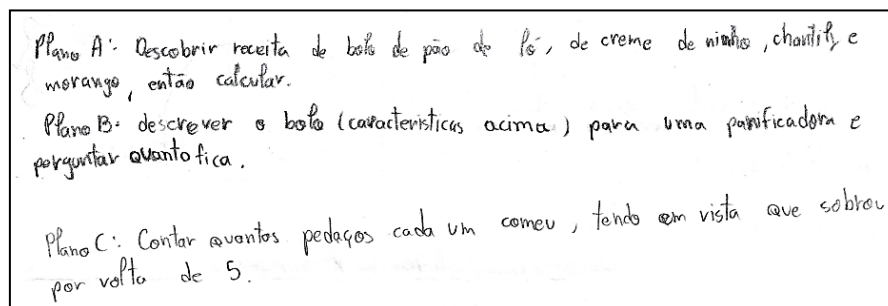 Plano A: Descobrir receita de bolo de pão de ló, de creme de ninho, chantily e
morango, então calcular.
Plano B: descrever o bolo (características acima) para uma panificadora e
perguntar quanto fica.
Plano C: Contar quantos pedaços cada um comeu, tendo em vista que sobrou
por volta de 5.